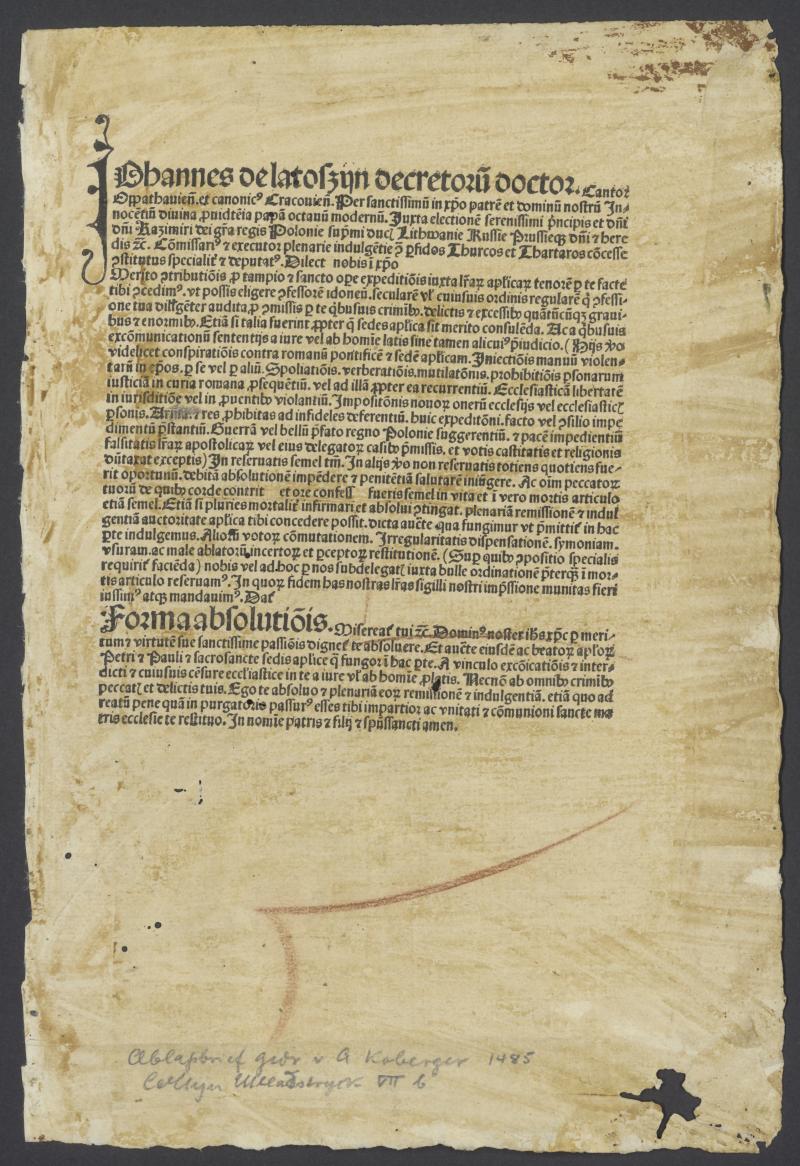 Johannes de latoszijn decretorū doctor. Cantoꝛ
Oppathavieñ. et canonicꝰ Cracovieñ. Per sanctissimū in xp̄o patrē et dominū nostrū In⸗
nocētiū divina ꝓuidētia papā octauū modernū. Juxta electionē serenissimi pͥncipis et dn̄i
dn̄i Kazimiri dei gr̄a regis Polonie sup̄mi ducꝭ Lithwanie Russie Prussieqꝫ dn̄i ⁊ here
dis ⁊c̄. Cōmissariꝰ ⁊ executor plenarie indulgētie ꝯ ꝑfidos Thurcos et Thartaros cōcesse
ꝯstitutus specialit̄ ⁊ deputatꝰ. Dilect nobis ī xp̄o
Merito ꝯtributiōis ꝓ tam pio ⁊ sancto oꝑe expeditiōis iuxta lr̄aꝝ ap̄licaꝝ tenorē ꝑ te facte
tibi ꝯcedimꝰ. vt possis eligere ꝯfessorē idoneū. secularē vl̓ cuiusuis ordinis regularē q̄ ꝯfessi⸗
one tua dilīgēter audita ꝓ ꝯmissis ꝑ te qͥbusuis crimībꝰ. delictis ⁊ excessibꝰ quātūcūqꝫ graui
bus ⁊ enormibꝰ. Etiā si talia fuerint ꝓpter q̄ sedes ap̄lica sit merito consulēda. Ac a qͥbusuis
excōmunicationū sententijs a iure vel ab homīe latis sine tamen alicuiꝰ p̄iudicio. (Pijs v̓o
videlicet conspiratiōis contra romanū pontificē ⁊ sedē ap̄licam. Iniectiōis manuū violen⸗
tarū in ep̄os. ꝑ se vel ꝑ aliū. Spoliatiōis. verberatiōis. mutilatōnis. prohibitiōis ꝑsonarum
iusticiā in curia romana ꝓsequētiū. vel ad illā ꝓpter ea recurrentiū. Ecclesiasticā libertatē
in iurisditiōe vel in ꝓuentibꝰ violantiū. Impositōnis nouoꝝ onerū ecclesijs vel ecclesiasticꝭ
ꝑsonis. Arma ⁊ res ꝓhibitas ad infideles deferentiū. huic expeditōni. facto vel ꝯsilio impe
dimentū p̄stantiū. Guerrā vel bellū p̄fato regno Polonie suggerentiū. ⁊ pacē impedientiū
falsitatis lr̄aꝝ apostolicaꝝ vel eius delegatoꝝ casibꝰ p̄missis. et votis castitatis et religionis
dūtaxat exceptis) In reseruatis semel tm̄. In alijs v̓o non reseruatis totiens quotiens fue⸗
rit oportunū. debitā absolutionē impēdere ⁊ penitētiā salutarē iniūgere. Ac oīm peccatoꝝ
tuorū de quibꝰ corde contrit et ore confess fueris semel in vita et ī vero mortis articulo
etiā semel. Etiā si pluries mortalit̄ infirmari et absolui ꝯtingat. plenariā remissionē ⁊ indul
gentiā auctoritate ap̄lica tibi concedere possit. dicta auc̄te qua fungimur vt p̄mittit̄ in hac
ꝑte indulgemus. Alioꝝ votoꝝ cōmutationem. Irregularitatis dispensationē. symoniam.
vsuram. ac male ablatorū incertoꝝ et ꝑceptoꝝ restitutionē. (Suꝑ quibꝰ ꝯpositio specialis
requirit̄ faciēda) nobis vel ad hoc ꝑ nos subdelegatꝭ iuxta bulle ordinationē p̄terqꝫ ī mor⸗
tis articulo reseruamꝰ. In quoꝝ fidem has nostras lr̄as sigilli nostri imp̄ssione munitas fieri
iussimꝰ atqꝫ mandauimꝰ. Dat̄
Forma absolutiōis. Misereat̄ tui ⁊c̄. Dominꝰ noster ih̄s xp̄c ꝑ meri⸗
tum ⁊ virtutē sue sanctissime passiōis dignet̄ te absoluere. Et auc̄te eiusdē ac beatoꝝ ap̄loꝝ
Petri ⁊ Pauli ⁊ sacrosancte sedis ap̄lice q̄ fungor ī hac ꝑte. A vinculo excōicatiōis ⁊ inter⸗
dicti ⁊ cuiusuis cēsure eccl̓iastice in te a iure vl̓ ab homīe ꝓlatis. Necnō ab omnibꝰ crimībꝰ
peccatꝭ et delictis tuis. Ego te absoluo ⁊ plenariā eoꝝ remissionē ⁊ indulgentiā. etiā quo ad
reatū pene quā in purgatoris passurꝰ esses tibi impartior ac vnitati ⁊ cōmunioni sancte ma
tris ecclesie te restituo. In nomīe patris ⁊ filij ⁊ sp̄ussancti amen.
Ablaßbrief gedr v A Koberger 1485
VII 6